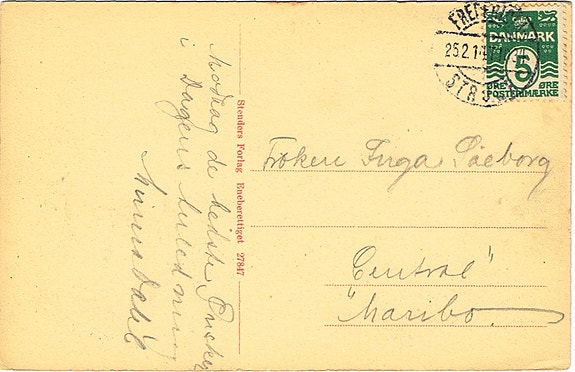 Modtag de bedste Ønsker
i Dagens Anledning
Minna Dahl
Stenders Forlag Eneberettiget 27847
FREDERIKS
25.2.14
STRUP
DANMARK
5
ØRE ØRE
POSTFRIMÆRKE
Frøken Inga Søeborg
"Central"
Maribo